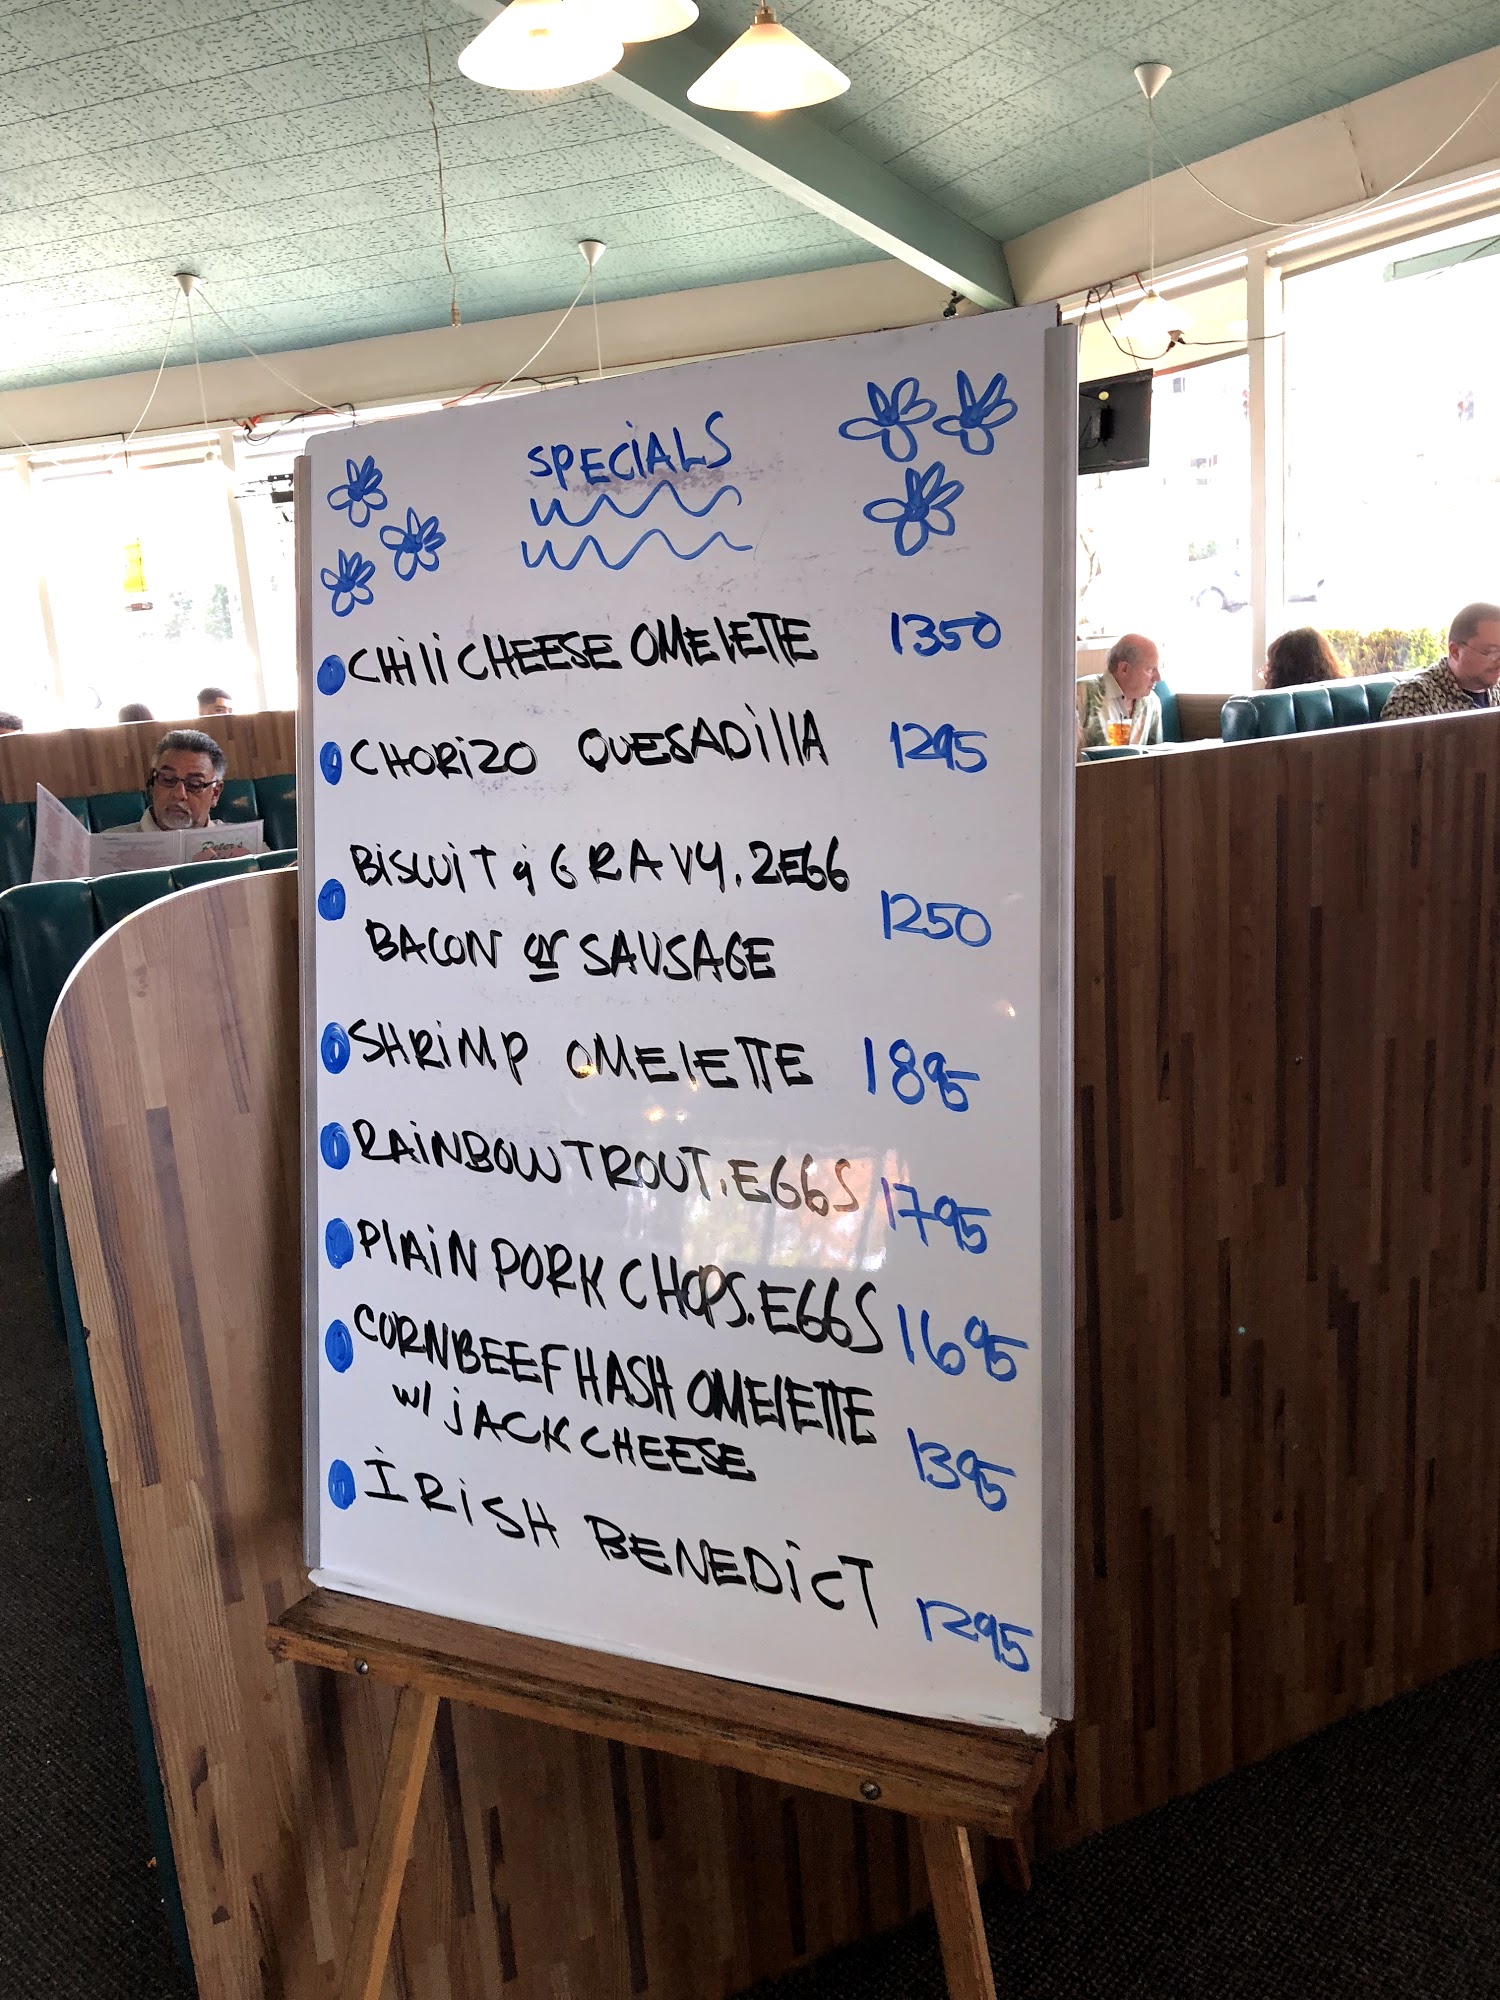 SPECiALS
CHiliCHEESE OMElETTE 1350
CHORiZO QUESADillA 1295
BiSCUiT & GRAVY. 2EGG
BACON or SAUSAGE 1250
SHRiMP OMElETTE 1895
RAiNBOW TROUT. EGGS 1795
PlAiN PORK CHOPS. EGGS 1695
CORNBEEF HASH OMElETTE
w/ jACK CHEESE 1395
iRiSH BENEDiCT 1295
Peter's